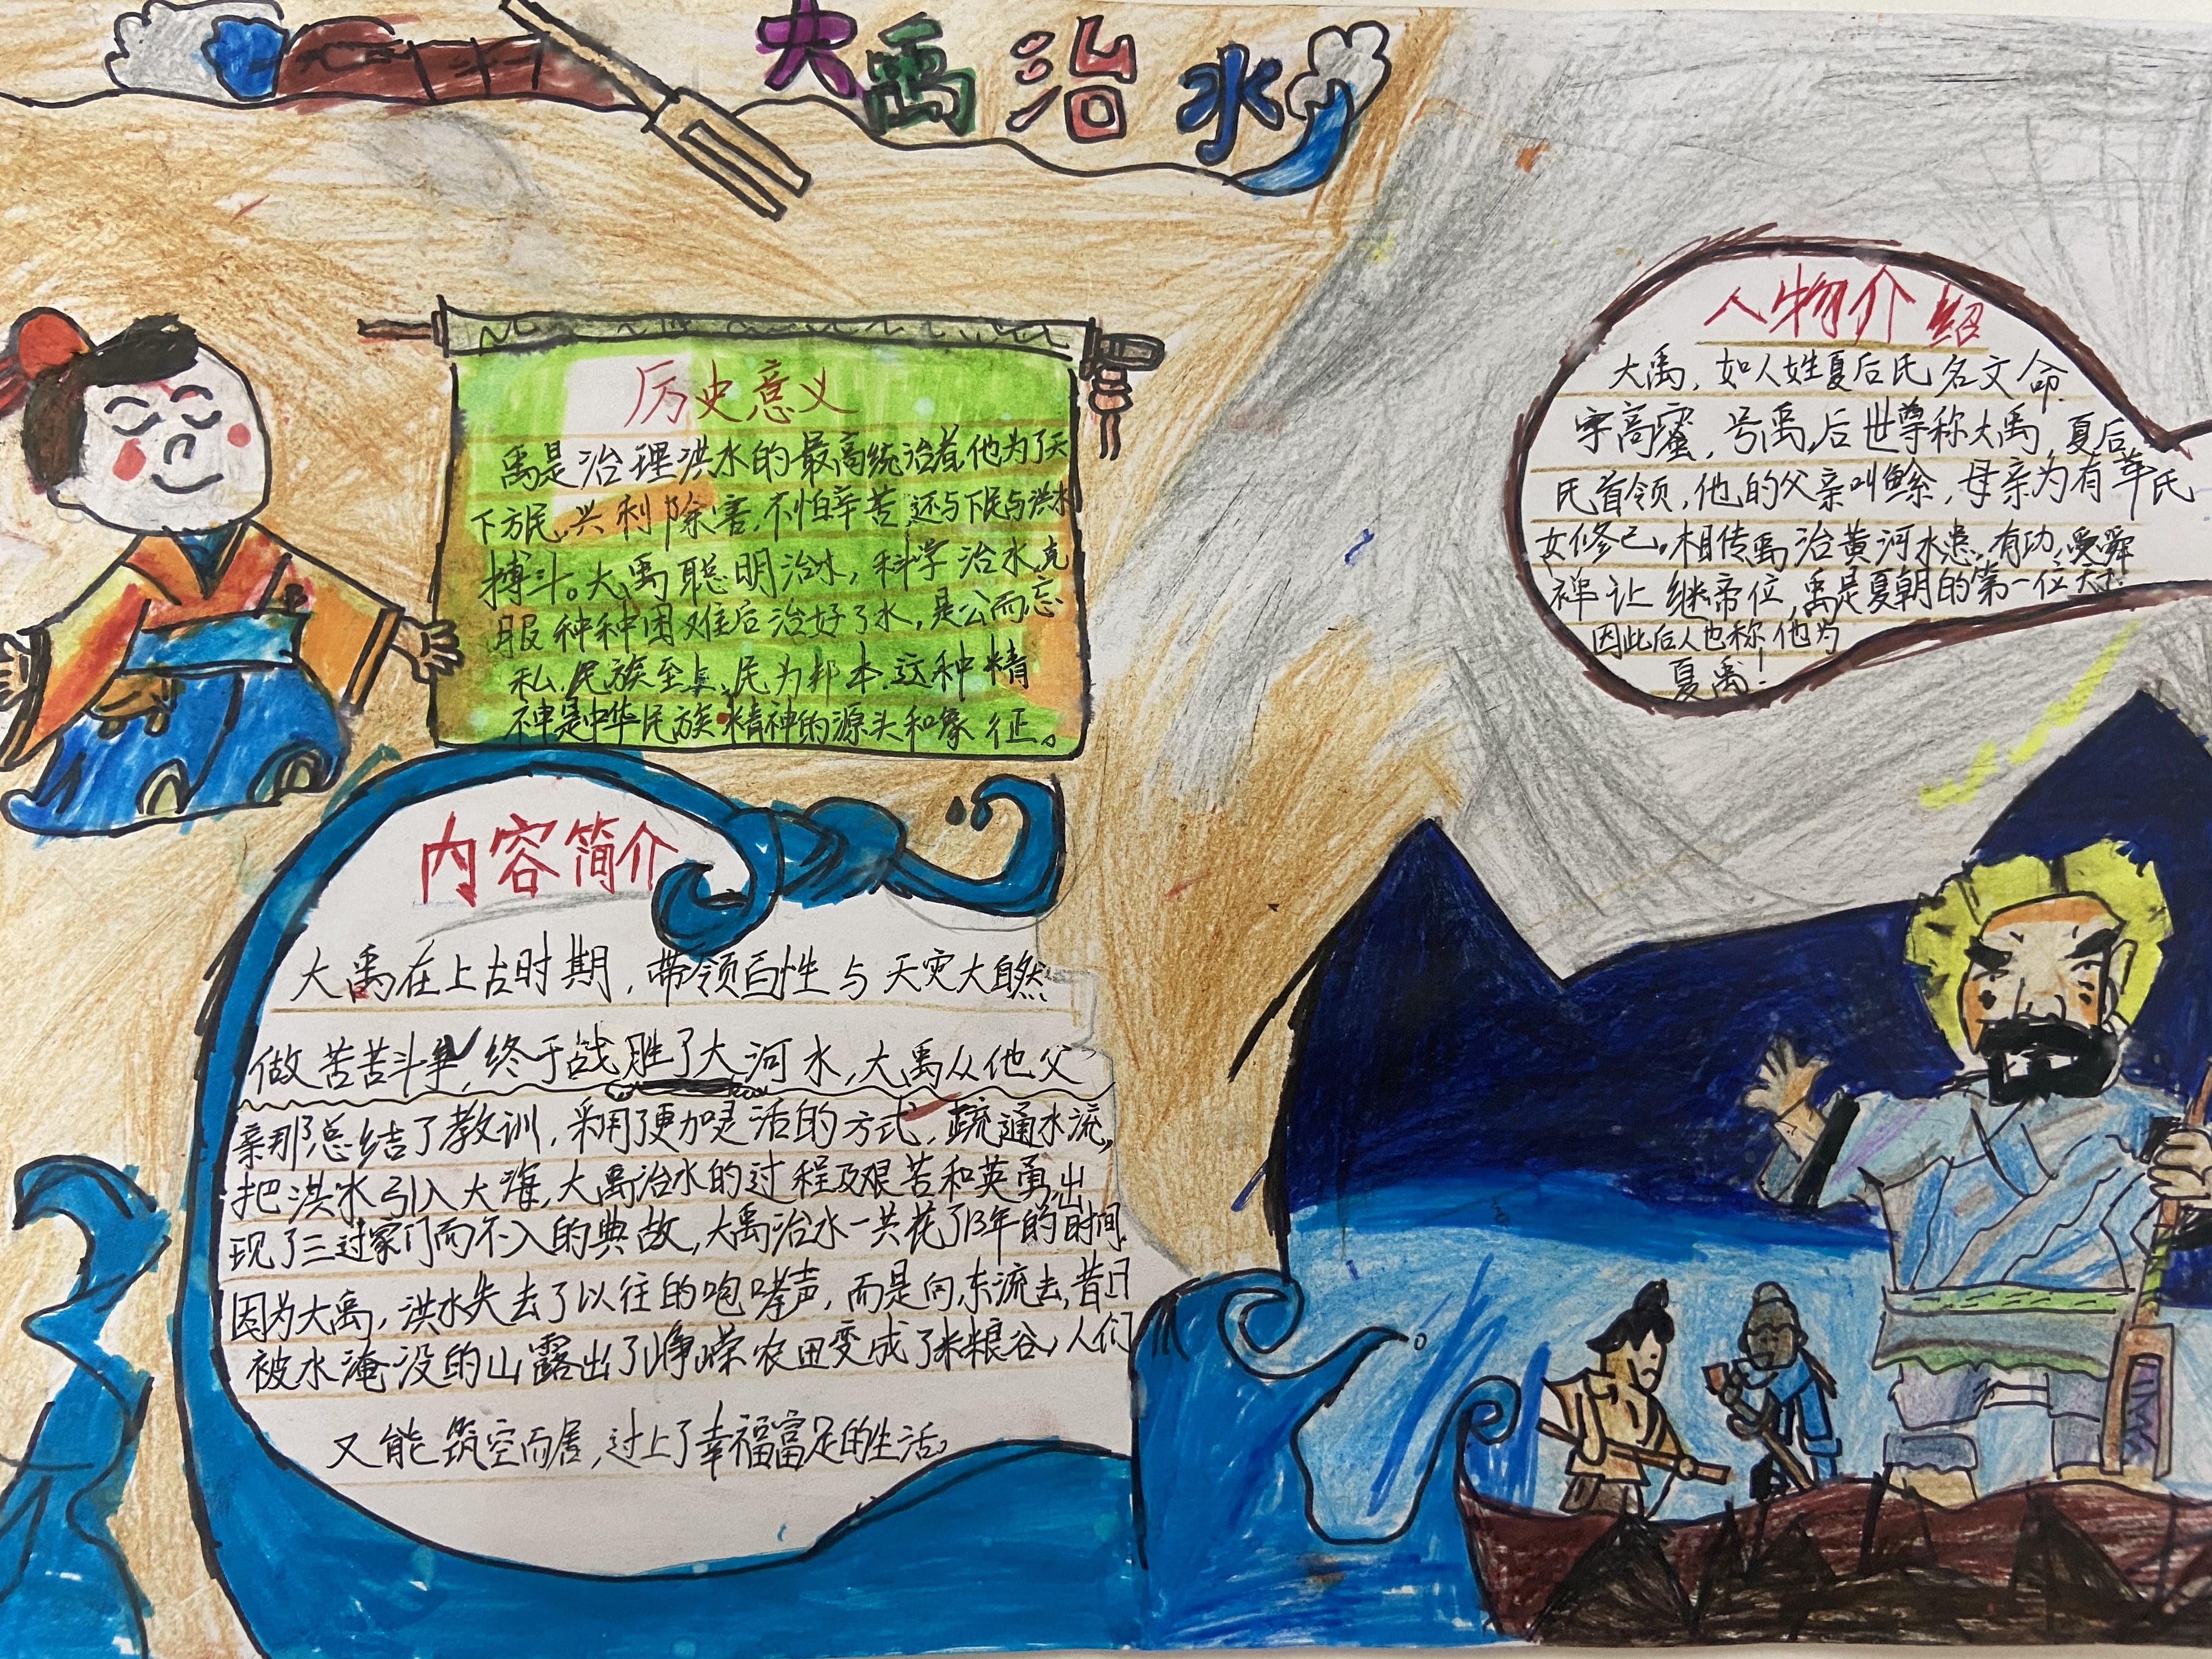 大禹治水
历史意义
禹是治理洪水的最高统治者,他为了天
下方民,兴利除害,不怕辛苦,还与下民与洪水
搏斗。大禹聪明治水,科学治水,克
服种种困难后治好了水,是公而忘
私,民族至上,民为邦本,这种精
神是中华民族精神的源头和象征。
人物介绍
大禹,如人姓夏后氏名文命,
字高密,号禹,后世尊称大禹,夏后
氏首领,他的父亲叫鲧,母亲为有莘氏
女修己。相传禹治黄河水患有功,受舜
禅让继帝位,禹是夏朝的第一位天子,
因此后人也称他为
夏禹!
内容简介
大禹在上古时期,带领百性与天灾大自然
做苦苦斗争,终于战胜了大河水,大禹从他父
亲那总结了教训,采用了更加灵活的方式,疏通水流,
把洪水引入大海,大禹治水的过程及艰苦和英勇,出
现了三过家门而不入的典故,大禹治水一共花了13年的时间,
因为大禹,洪水失去了以往的咆哮声,而是向东流去,昔日
被水淹没的山露出了峥嵘,农田变成了米粮谷,人们
又能筑空而居,过上了幸福富足的生活。